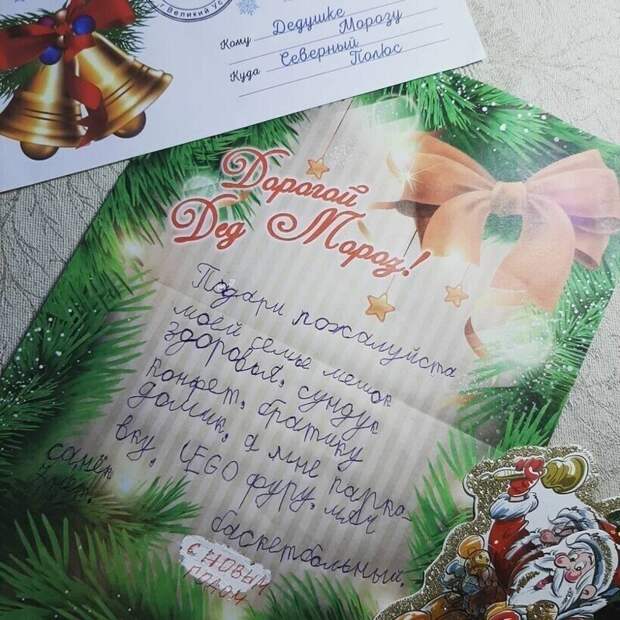 г Великий Ус
Кому Дедушке
Морозу
Куда Северный
Полюс
Дорогой
Дед Мороз!
Подари пожалуйста
моей семье мешок
здоровья, сундук
конфет, братику
домик, а мне парко-
вку, LEGO фуру, мяч
баскетбольный.
санёк
7 лет.
С НОВЫМ
ГОДОМ